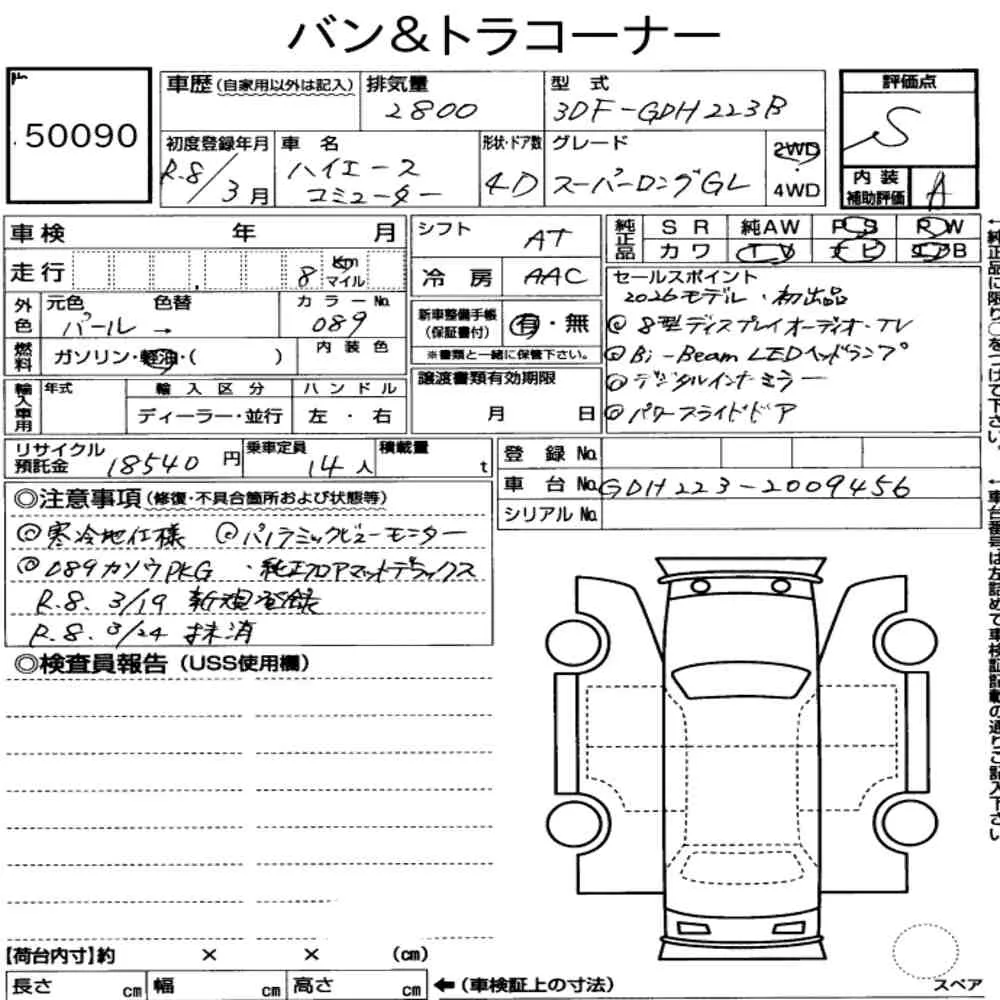 バン&トラコーナー
50090
車歴(自家用以外は記入)
排気量
2800
型 式
3DF-GDH223B
評価点
S
初度登録年月
R.8/3月
車 名
ハイエース
コミューター
形状・ドア数
4D
グレード
スーパーロングGL
2WD
・
4WD
内 装
補助評価
A
車検 年 月
走行 8 Km マイル
シフト
AT
冷 房
AAC
純正品
S R 純AW P S R W
カ ワ T V ナ ビ エアB
外色
元色 色替
パール →
カラーNo.
089
燃料
ガソリン・軽油・( )
内 装 色
新車整備手帳
(保証書付)
有・無
※書類と一緒に保管下さい。
セールスポイント
2026モデル・初出品
◎8型ディスプレイオーディオ・TV
◎Bi-Beam LEDヘッドランプ
◎デジタルインナーミラー
◎パワースライドドア
輸入車用
年式
輸 入 区 分
ディーラー・並行
ハ ン ド ル
左 ・ 右
譲渡書類有効期限
月 日
リサイクル
預託金
18540円
乗車定員
14人
積載量
t
登 録 No.
車 台 No. GDH223-2009456
シリアル No.
◎注意事項(修復・不具合箇所および状態等)
◎寒冷地仕様 ◎パノラミックビューモニター
◎089カソウPKG ・純正フロアマットデラックス
R.8.3/19 新規登録
R.8.3/24 抹消
◎検査員報告(USS使用欄)
【荷台内寸】約 × × (cm)
長さ cm 幅 cm 高さ cm
←(車検証上の寸法)
スペア
←純正品に限り○をつけて下さい。
←車台番号は左詰めで車検証記載の通りご記入下さい